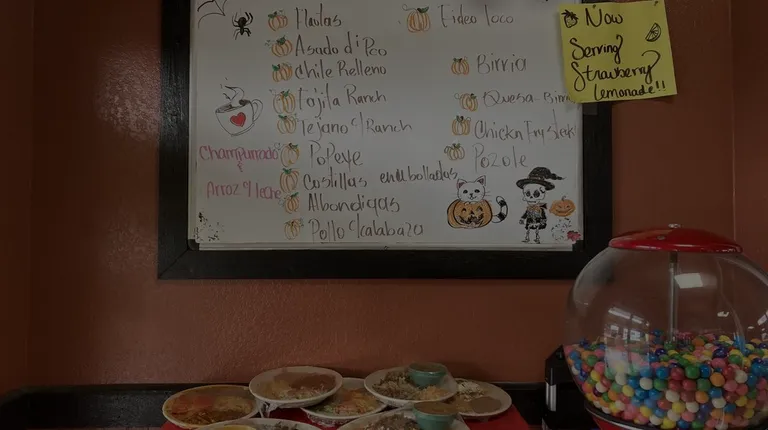 Flautas
Asado di Pco
Chile Relleno
Fajita Ranch
Tejano c/Ranch
Popeye
Costillas enebolladas
Albondigas
Pollo c/calabaza
Champurrado
&
Arroz c/leche
Fideo loco
Birria
Quesa-Birria
Chickn Fry steak
Pozole
Now
Serving
Strawberry
Lemonade!!